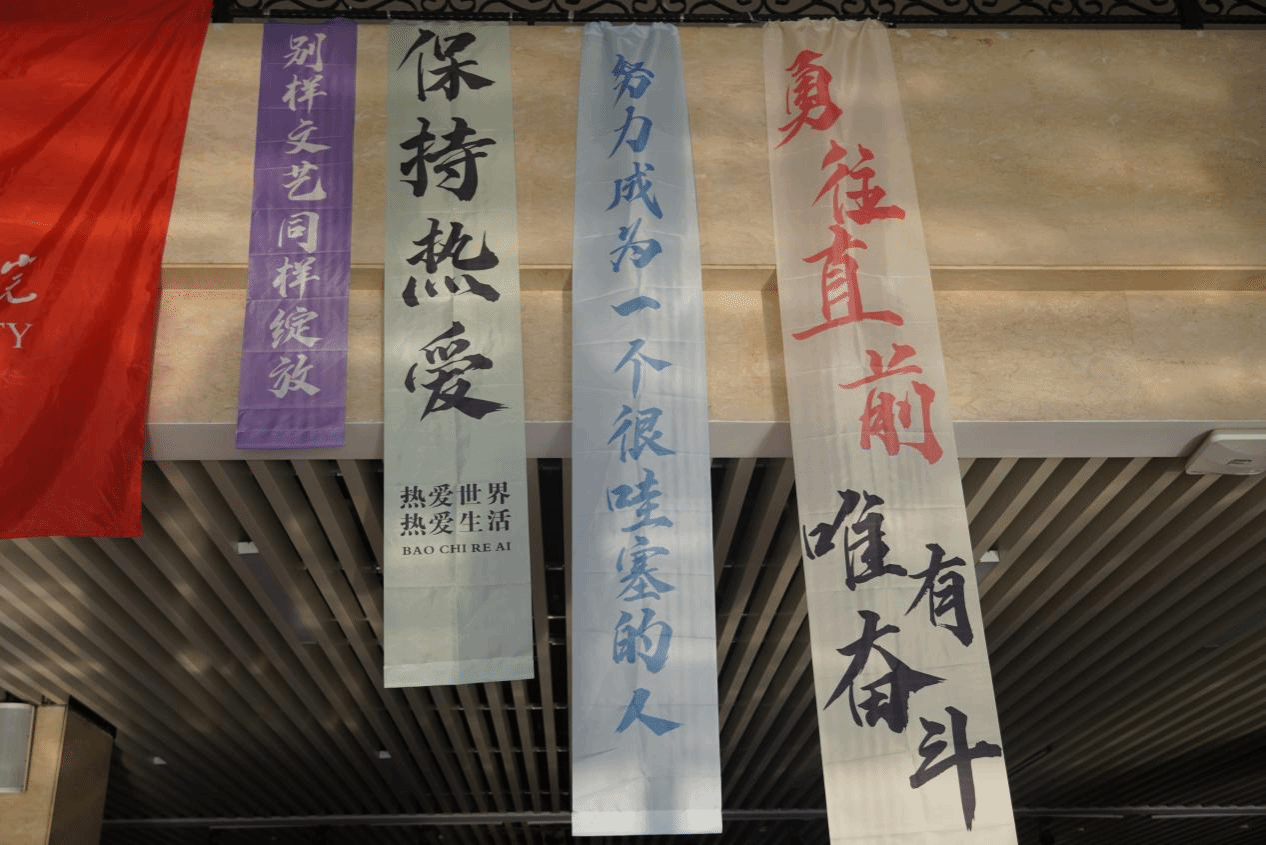 别样文艺同样绽放
保持热爱
热爱世界
热爱生活
BAO CHI RE AI
努力成为一个很哇塞的人
勇往直前
唯有奋斗